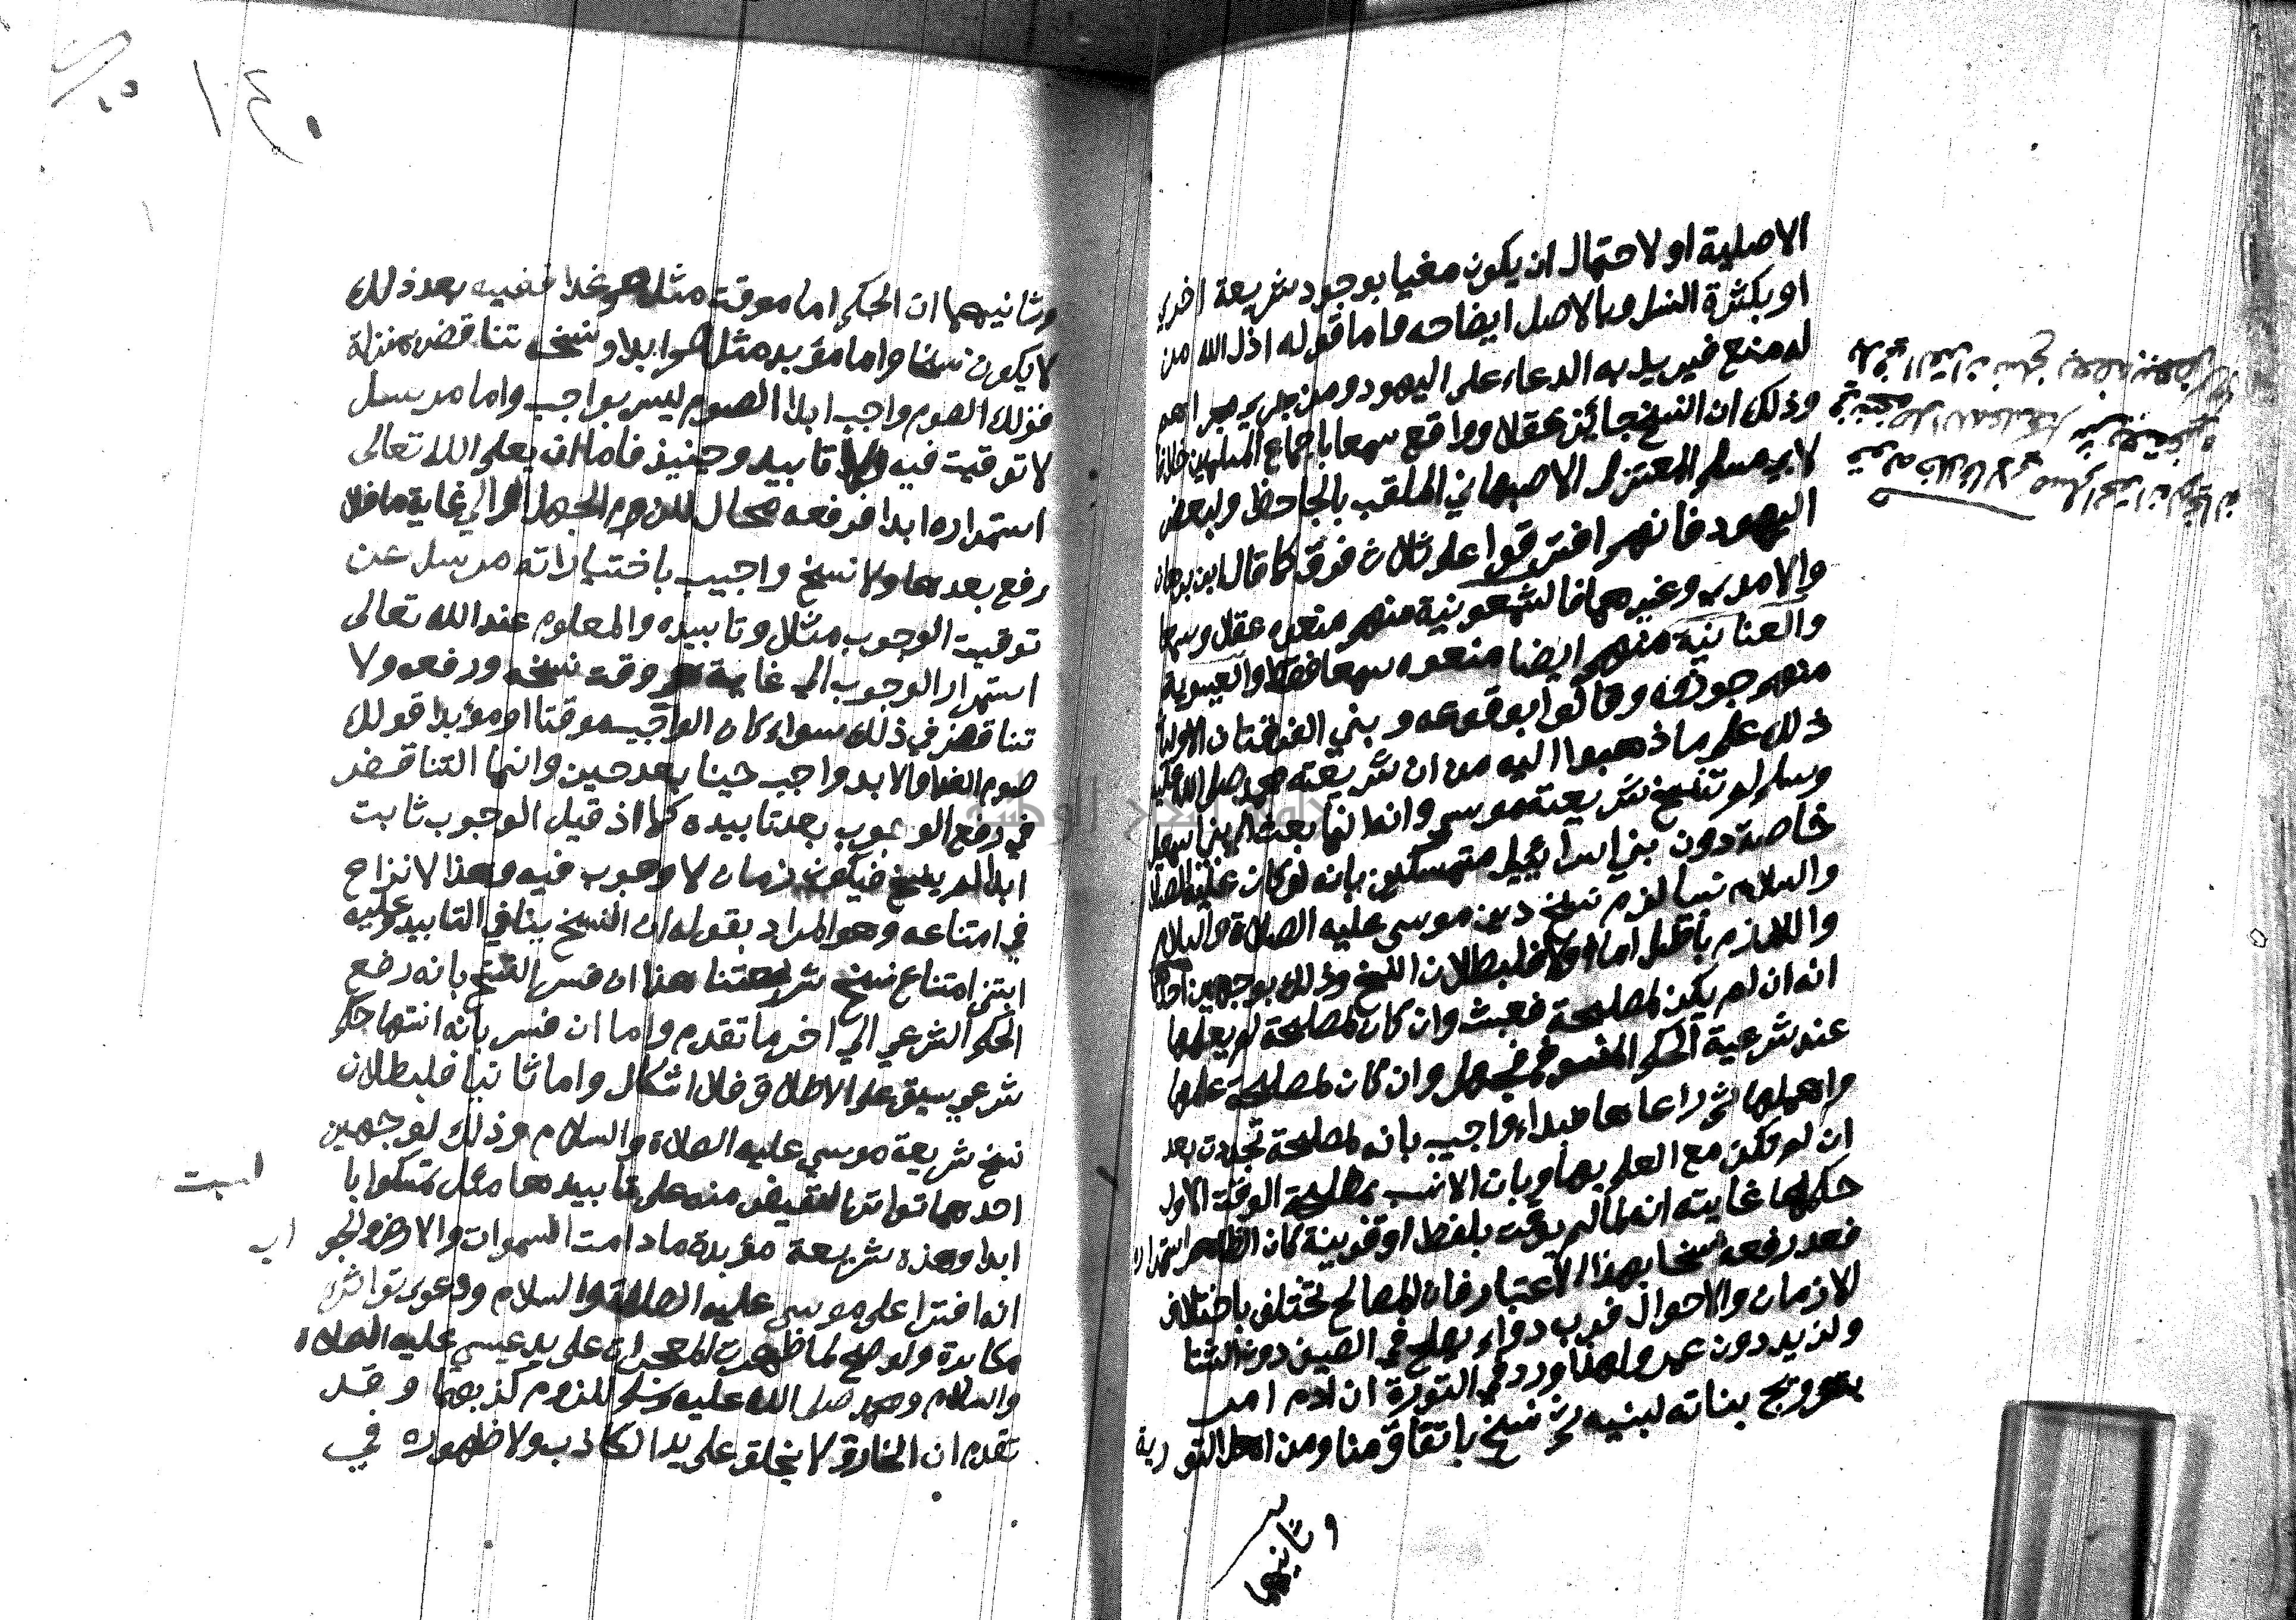 الاصلية او لاحتمال ان يكون مغيا بوجود شريعة اخري
او بكثرة النسل وبالاصل ايضاحه واما قوله اذل الله من
له منع فيريد به الدعاء على اليهود ومن جري مجراهم
وذلك ان النسخ جائز عقلا وواقع سمعا باجماع المسلمين خلافا
لابي مسلم المعتزلي الاصبهاني الملقب بالجاحظ ولبعض
اليهود فانهم افترقوا على ثلاث فرق كما قال ابن برهان
والامدي وغيرهما فالشمعونية منهم منعوه عقلا وسمعا
والعنانية منهم ايضا منعوه سمعا فقط والعيسوية
منهم جوزوه وقالوا بوقوعه وبني الفرقتان الاوليا
ذلك على ما ذهبوا اليه من ان شريعته محمد صلى الله عليه
وسلم لم تنسخ شريعة موسى وانه انما بعث الى بني اسمعيل
خاصة دون بني اسرائيل متمسكين بانه لو كان عليه الصلاة
والسلام نبيا لزم نسخ دين موسى عليه الصلاة والسلام
واللازم باطل اما اولا فلبطلان النسخ وذلك بوجهين احدهما
انه ان لم يكن لمصلحة فعبث وان كان لمصلحة لم يعلمها
عند شرعية الحكم المنسوخ فجهل وان كان لمصلحة علمها
واهملها ثم راعاها فبداء واجيب بانه لمصلحة تجددت بعد
ان لم تكن مع العلم بها وبان الانسب بمصلحة الوقت الاول
حكمها غايته انه لما لم يوقت بلفظ او قرينة كان الظاهر استمراره
فعد رفعه نسخا بهذا الاعتبار فان المصالح تختلف باختلاف
الازمان والاحوال فرب دواء يصلح في الصيف دون الشتا
ولزيد دون عمرو ولهذا ورد في التورية ان ادم امر
بتزويج بناته لبنيه ثم نسخ باتفاق منا ومن اهل التورية
وثانيهما
١٤٠
وثانيهما ان الحكم اما موقت مثل صم غدا فنفيه بعد ذلك
لا يكون نسخا واما مؤبد مثل صم ابدا ونسخه تناقض بمنزلة
قولك الصوم واجب ابدا الصوم ليس بواجب واما مرسل
لا توقيت فيه ولا تابيد وحينيذ فاما ان يعلم الله تعالى
استمراره ابدا فرفعه محال للزوم الجهل او الي غاية ما فلا
رفع بعدها ولا نسخ واجيب باختيار انه مرسل عن
توقيت الوجوب مثلا وتابيده والمعلوم عند الله تعالى
استمرار الوجوب الى غاية هي وقت نسخه ورفعه ولا
تناقض في ذلك سواء كان الواجب موقتا او مؤبدا قولك
صوم الغد والابد واجب حينا بعد حين وانما التناقض
في رفع الوجوب بعد تابيده كما اذ قيل الوجوب ثابت
ابدا لم ينسخ فيكون زمان لا وجوب فيه وهذا لا نزاع
في امتناعه وهو المراد بقوله ان النسخ ينافي التابيد وعليه
ابتني امتناع نسخ شريعتنا هذا ان فسر النسخ بانه رفع
الحكم الشرعي الى اخر ما تقدم واما ان فسر بانه انتها حكم
شرعي سبق على الاطلاق فلا اشكال واما ثانيا فلبطلان
نسخ شريعة موسي عليه الصلاة والسلام وذلك لوجهين
احدهما تواتر النقيض منه على تابيدها مثل تمسكوا با لسبت
ابدا وهذه شريعة مؤبدة ما دامت السموات والارض والجو اب
انه افترا على موسى عليه الصلاة والسلام ودعوى تواتره
مكابرة ولو صح لما ظهرت المعجزات على يد عيسي عليه الصلاة
والسلام ومحمد صلى الله عليه وسلم للزوم كذبهما وقد
تقدم ان الخارق لا يخلق على يد الكاذب ولا ظهوره في